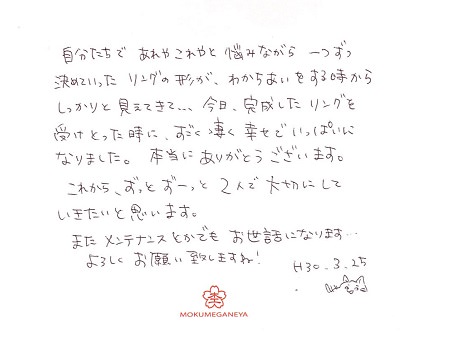 自分たちで あれやこれやと 悩みながら 一つずつ
決めていった リングの形が、わかちあいをする時から
しっかりと 見えてきて… 今日、完成した リングを
受けとった時に、すごく凄く 幸せで いっぱいに
なりました。 本当に ありがとう ございます。
これから、ずっと ずーっと 2人で 大切にして
いきたいと 思います。
また メンテナンス とかでも お世話になります…
よろしく お願い 致しますね!
H30.3.25
MOKUMEGANEYA